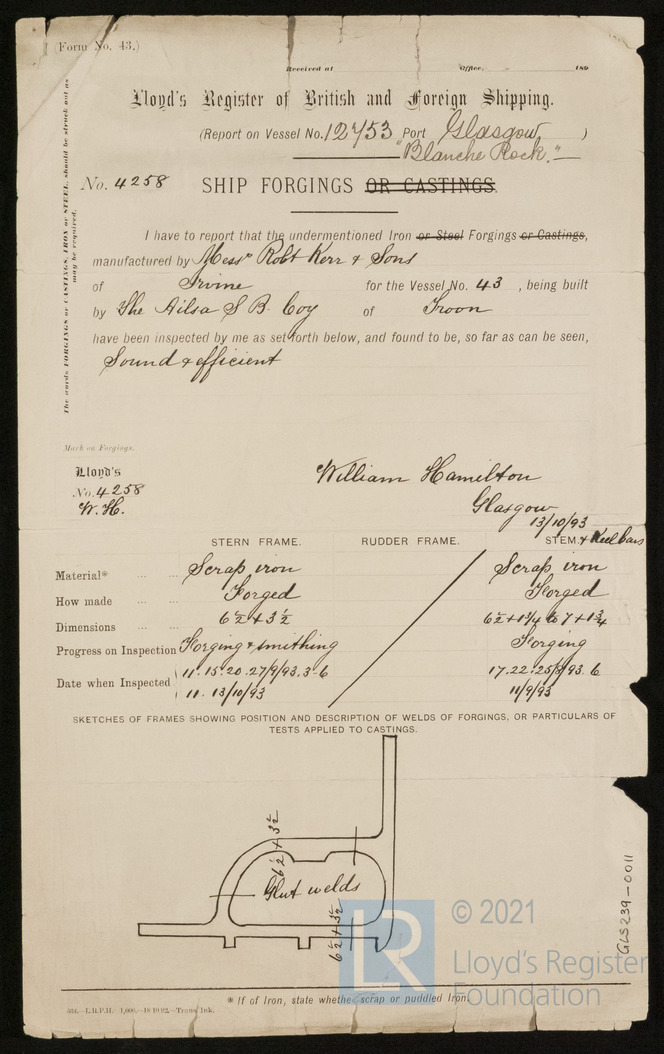 (Form No. 43.)
Received at Office, 189
Lloyd's Register of British and Foreign Shipping.
(Report on Vessel No. 12753 Port Glasgow )
"Blanche Rock."
No. 4258 SHIP FORGINGS OR CASTINGS.
The words FORGINGS or CASTINGS, IRON or STEEL, should be struck out as may be required.
I have to report that the undermentioned Iron or Steel Forgings or Castings,
manufactured by Messrs Robt Kerr & Sons
of Irvine for the Vessel No. 43 , being built
by The Ailsa S B. Coy of Troon
have been inspected by me as set forth below, and found to be, so far as can be seen,
Sound & efficient
Mark on Forgings.
Lloyd's
No. 4258
W. H.
William Hamilton
Glasgow
13/10/93
STERN FRAME. RUDDER FRAME. STEM. & Keel bars
Material* Scrap iron Scrap iron
How made Forged Forged
Dimensions 6½ + 3½ 6½ + 1¾ to 7 + 1¾
Progress on Inspection Forging & smithing Forging
Date when Inspected 11. 15. 20. 27/9/93. 3-6 17. 22. 25/8/93. 6
11. 13/10/93 11/9/93
SKETCHES OF FRAMES SHOWING POSITION AND DESCRIPTION OF WELDS OF FORGINGS, OR PARTICULARS OF
TESTS APPLIED TO CASTINGS.
6½ + 3½
Glut welds
6½ + 3½
GLS239-0011
LR
© 2021
Lloyd's Register
Foundation
* If of Iron, state whether scrap or puddled Iron.
L.R.P.H. 1,000.—18/10/92.—Trans. Ink.